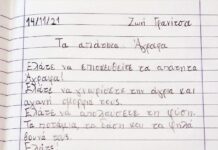 14/11/21 Ζωή Γρανίτσα
Τα απάτητα Άγραφα
Ελάτε να επισκεφθείτε τα απάτητα
Άγραφα!
Ελάτε να γνωρίσετε την άγρια και
αγανή ομορφιά τους.
Ελάτε να απολαύσετε τη φύση,
Τα ποτάμια, τα δάση και τα ψηλά
βουνά τους.
Ελάτε!